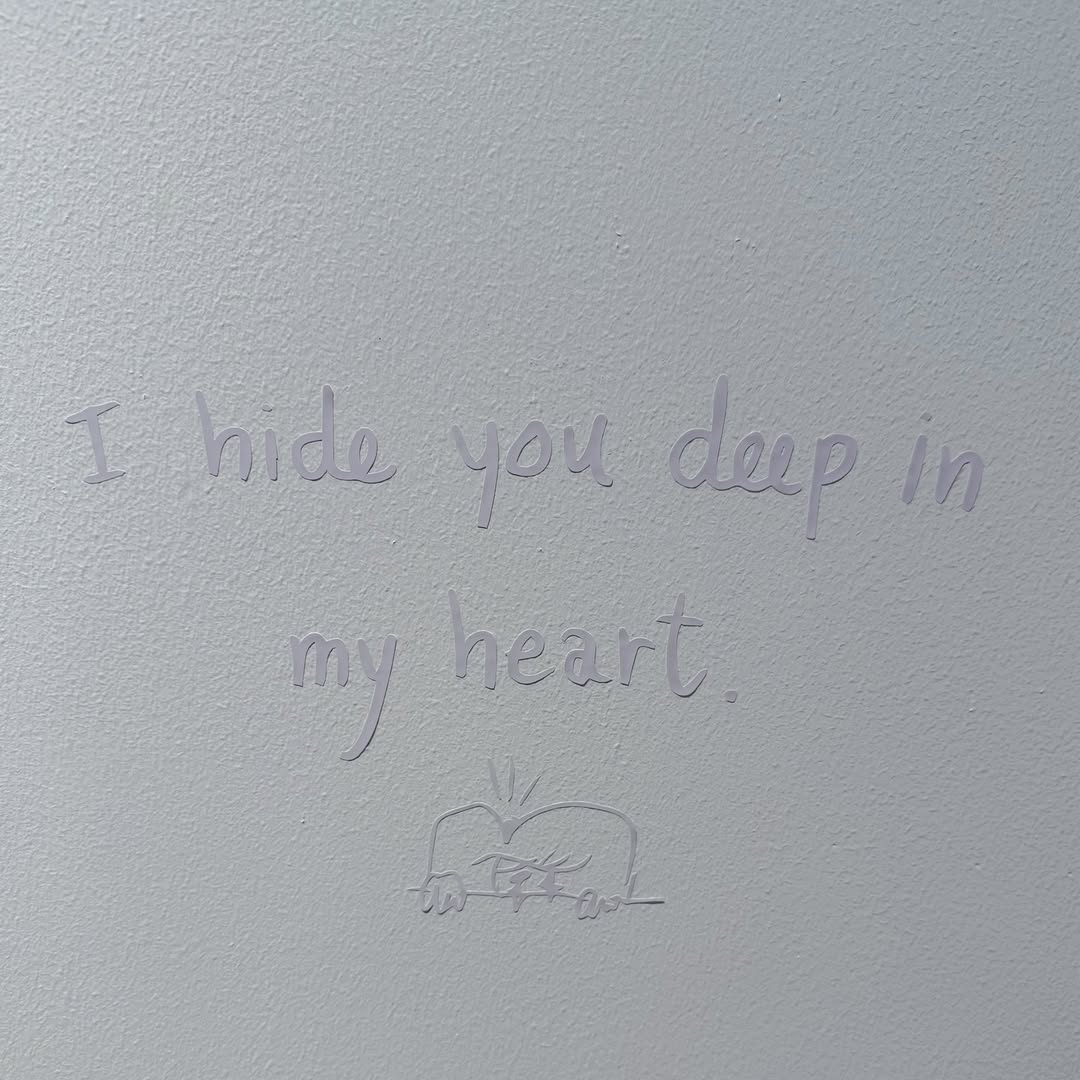 I hide you deep in
my heart.